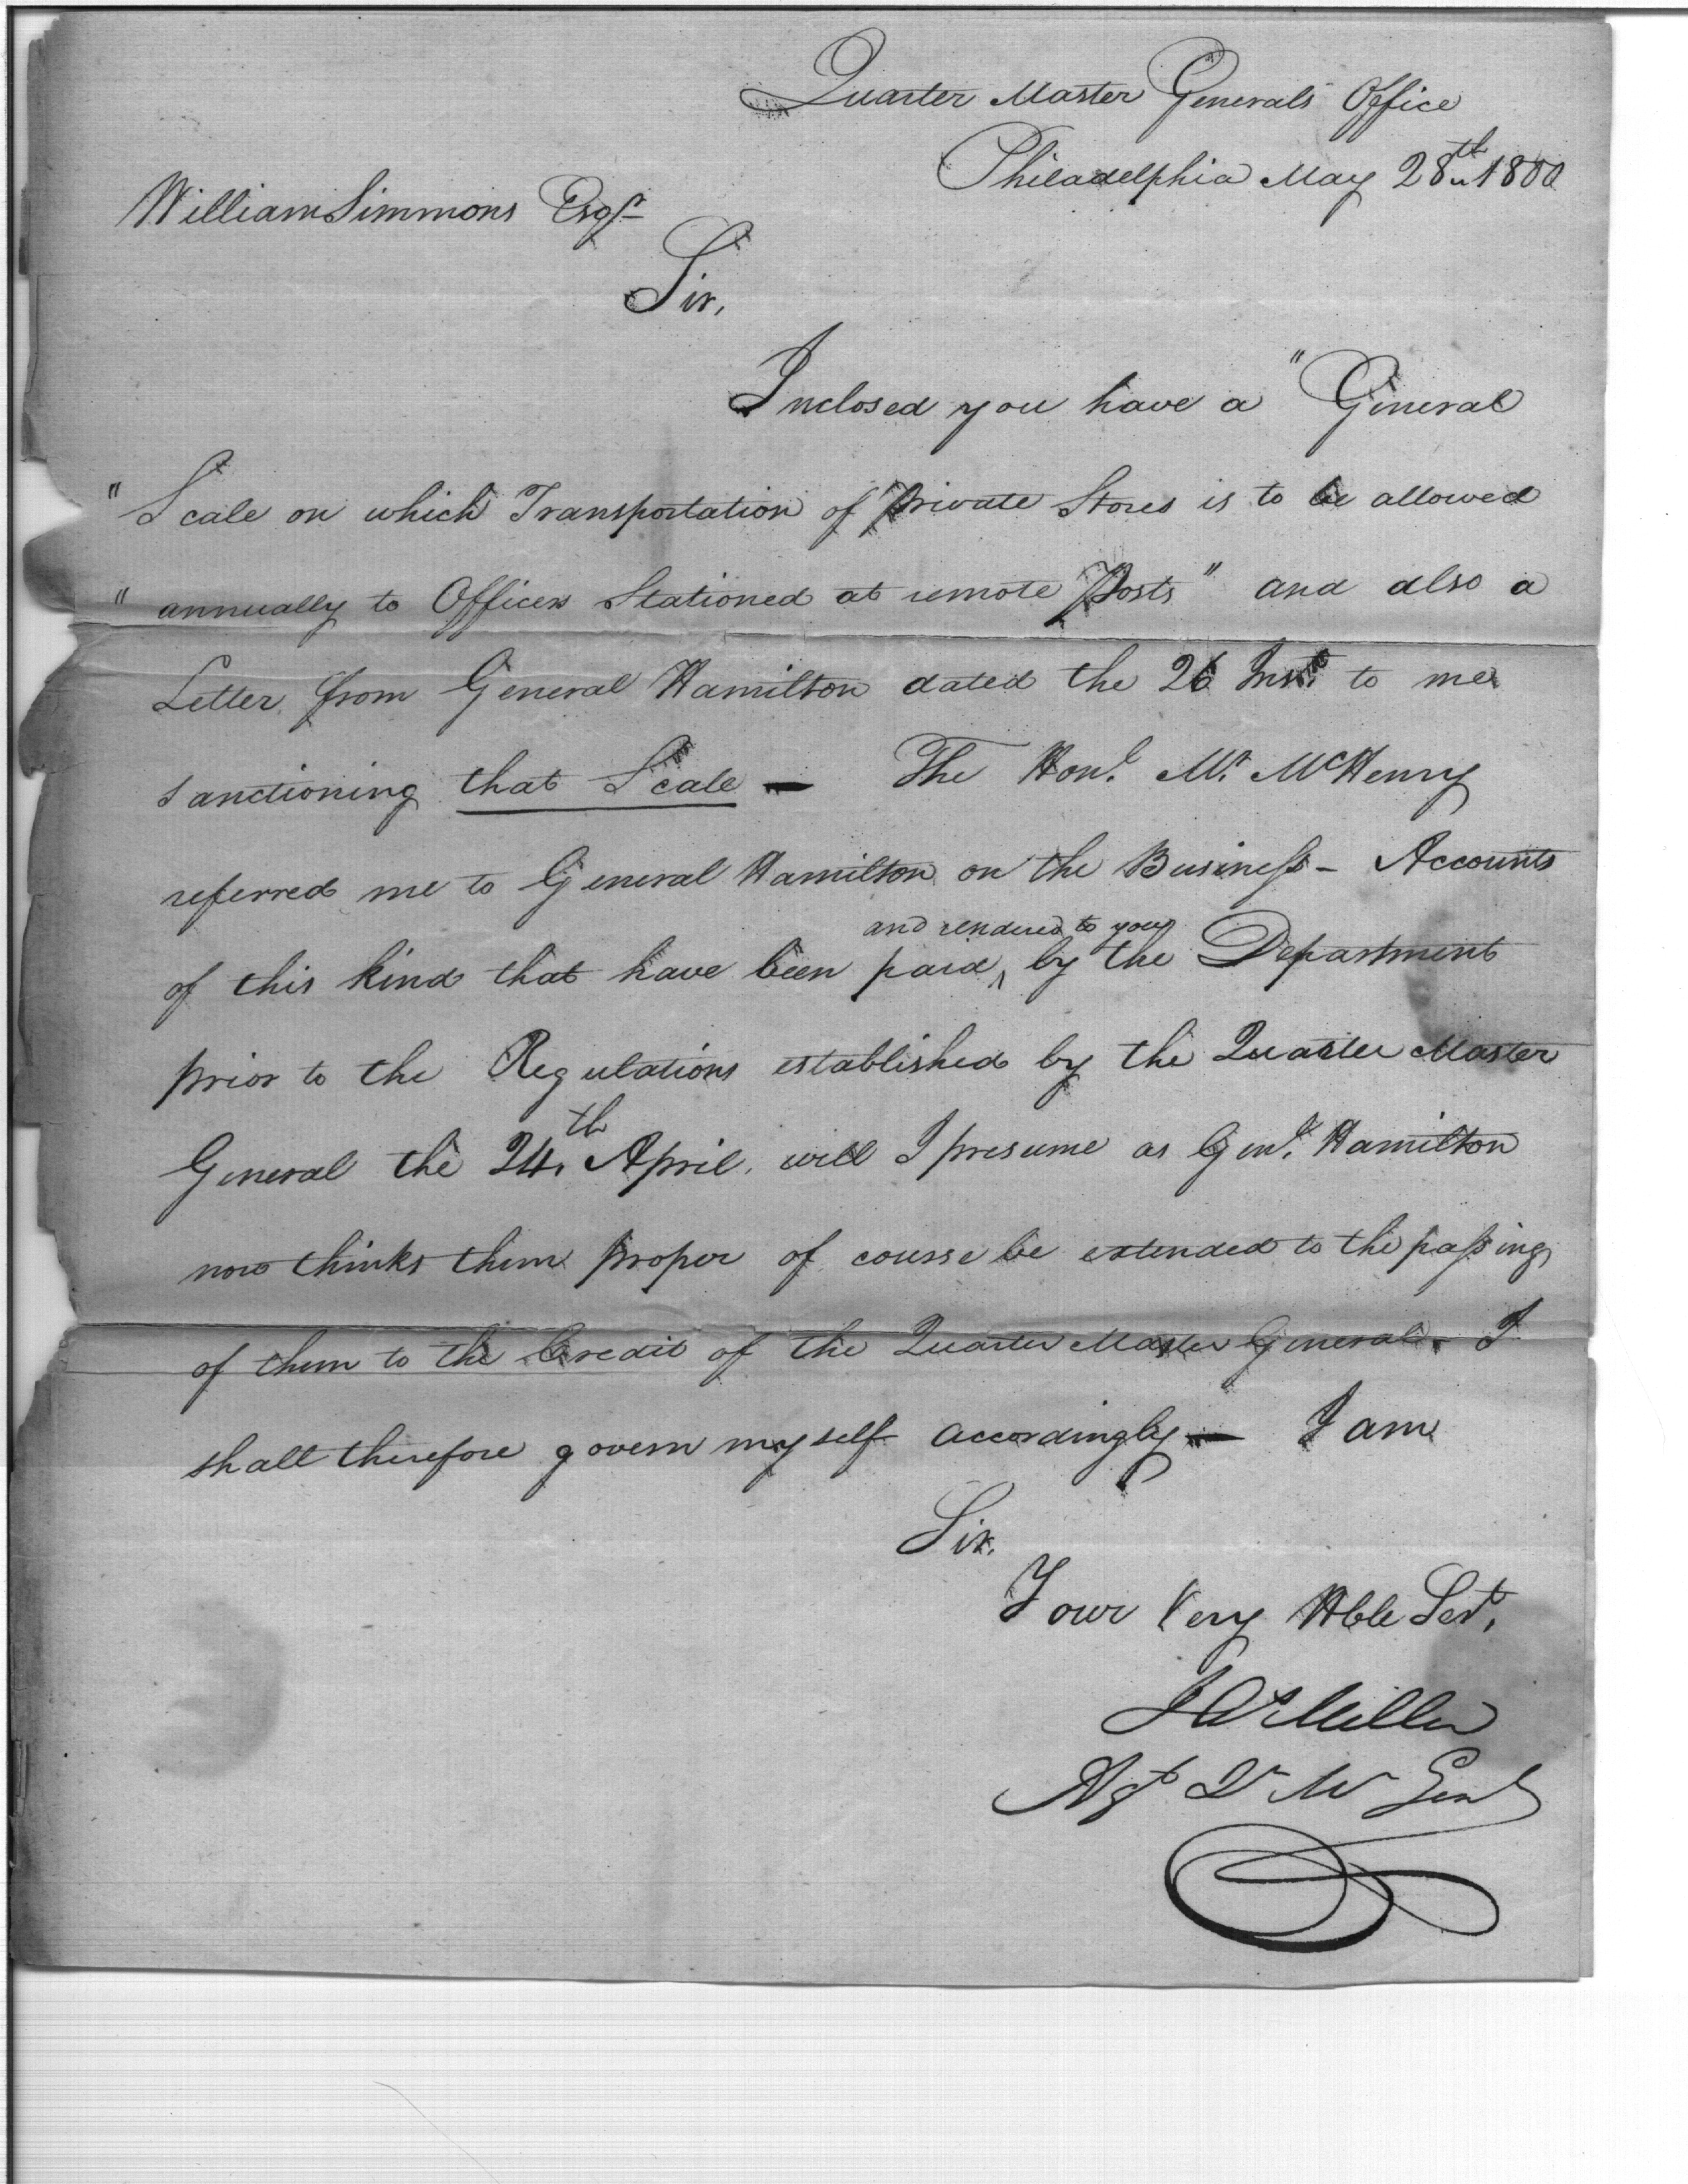 Quarter Master Generals Office
Philadelphia May 28th 1800
William Simmons Esqr
Sir,
Inclosed you have a "General
"Scale on which Transportation of private Stores is to be allowed
"annually to Officers Stationed at remote Posts" and also a
Letter from General Hamilton dated the 26 Inst. to me
sanctioning that Scale — The Honl. Mr. McHenry
referred me to General Hamilton on the Business – Accounts
and rendered to you
of this kind that have been paid ^ by the Department
prior to the Regulations established by the Quarter Master
General the 24th April. will I presume as Genl. Hamilton
now thinks them proper of course be extended to the passing
of them to the Credit of the Quarter Master General. I
shall therefore govern myself accordingly — I am
Sir.
Your Very Hble Sert.
Jn Miller
Agt Qr Mr Genl